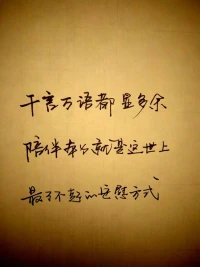 千言万语都显多余
陪伴本身就是这世上
最了不起的安慰方式